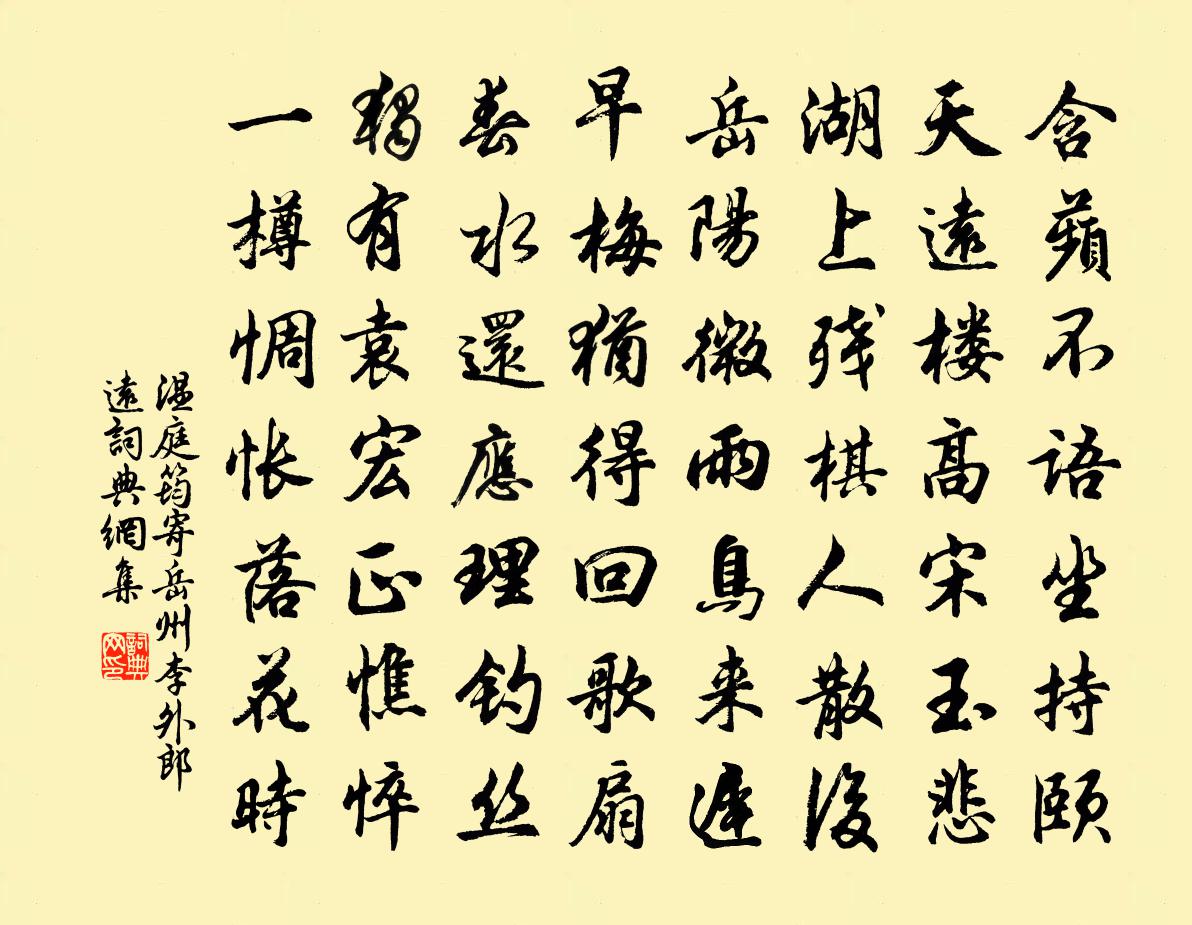 含蘋不語坐持颐
天遠楼高宋玉悲
湖上残棋人散後
岳陽微雨鳥来遲
早梅猶得回歌扇
春水還應理釣丝
獨有袁宏正憔悴
一樽惆怅落花時
温庭筠寄岳州李外郎
遠詞典網集
詞典网印